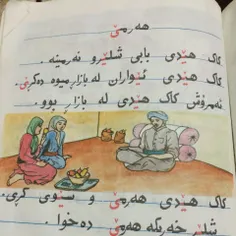 هەرمێ
کاک هێدی بابی شلێرو نەرمینە.
کاک هێدی ئێواران لە بازاڕ میوە دەکڕێ.
ئەمڕۆش کاک هێدی لە بازاڕ بوو.
کاک هێدی هەرمێ و سێوی کڕی.
شلێر خەریکە هەرمێ دەخوا.